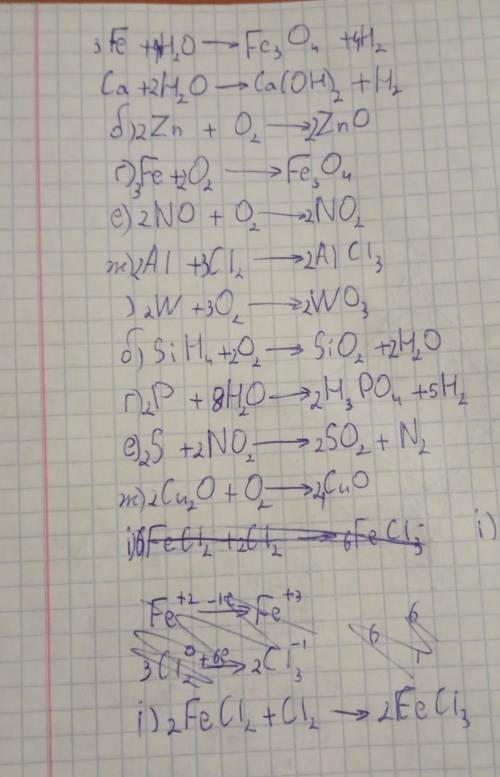 3Fe + 4H₂O → Fe₃O₄ + 4H₂
Ca + 2H₂O → Ca(OH)₂ + H₂
б) 2Zn + O₂ → 2ZnO
г) 3Fe + 2O₂ → Fe₃O₄
е) 2NO + O₂ → 2NO₂
ж) 2Al + 3Cl₂ → 2AlCl₃
) 2W + 3O₂ → 2WO₃
б) SiH₄ + 2O₂ → SiO₂ + 2H₂O
г) 2P + 8H₂O → 2H₃PO₄ + 5H₂
е) 2S + 2NO₂ → 2SO₂ + N₂
ж) 2Cu₂O + O₂ → 4CuO
i) 6FeCl₂ + 2Cl₂ → 6FeCl₃ i)
Fe⁺² −1e → Fe⁺³
3Cl₂⁰ +6e → 2Cl₃⁻¹ 6 6 1
i) 2FeCl₂ + Cl₂ → 2FeCl₃